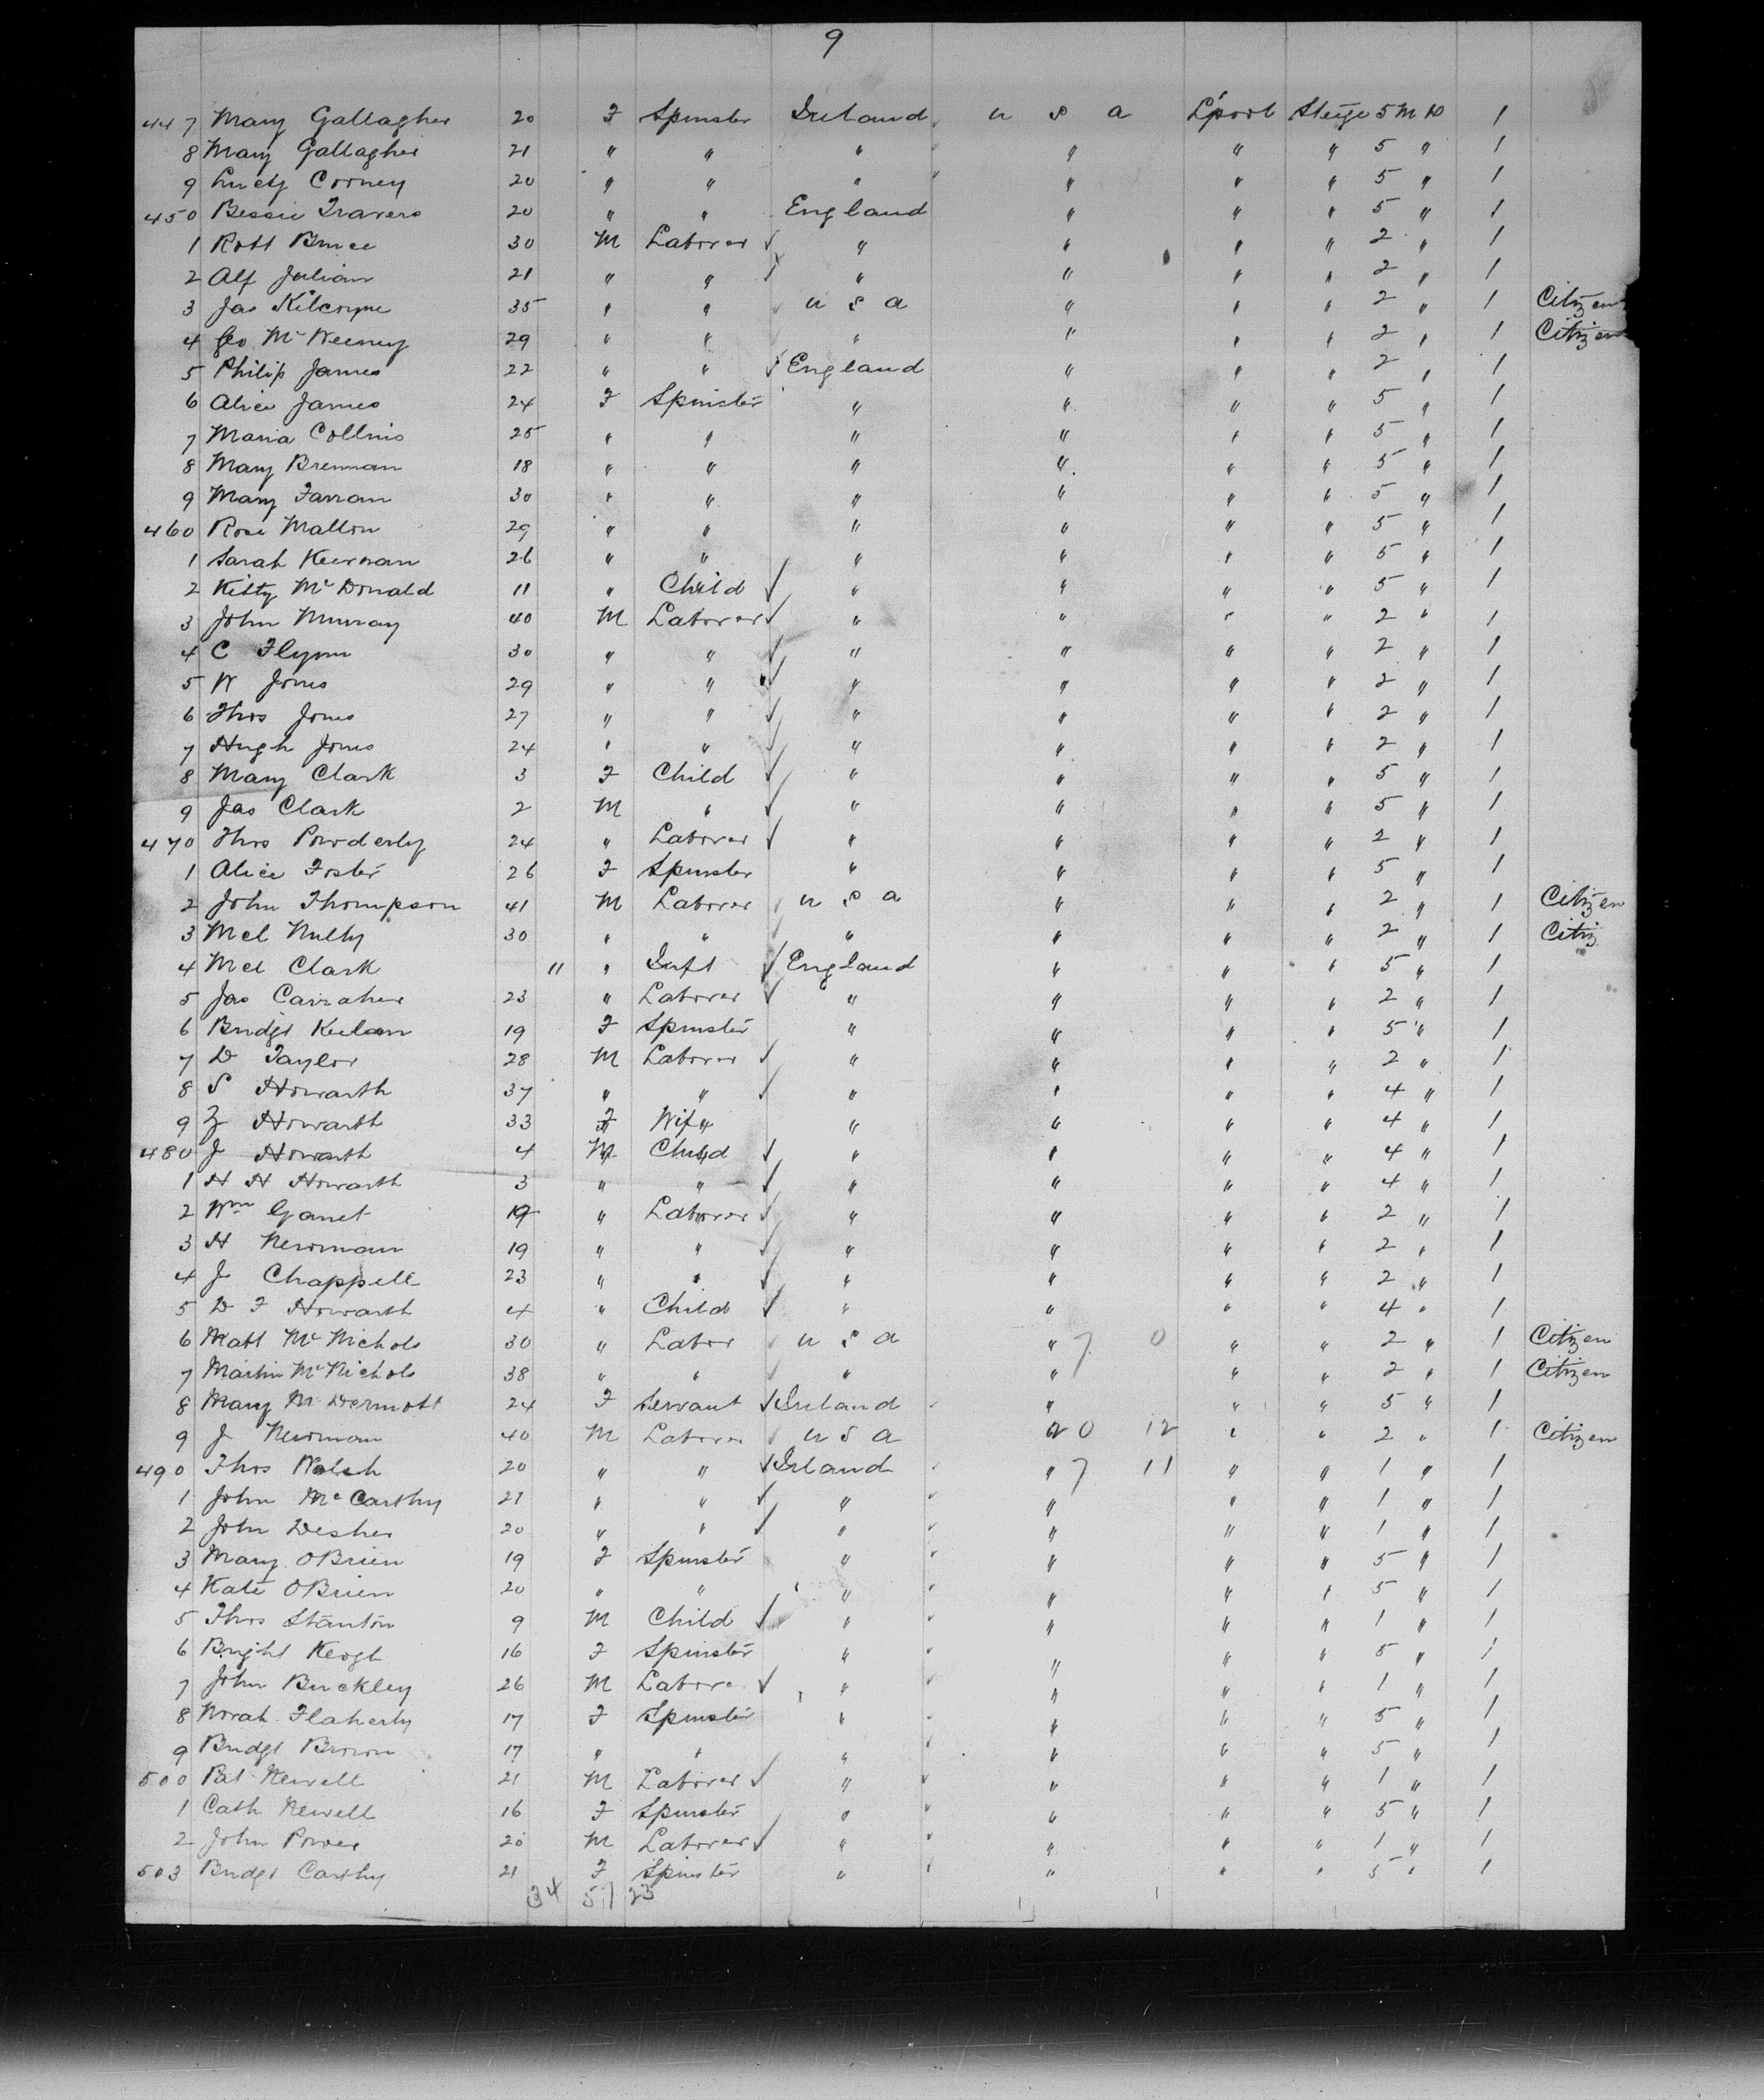 9
447 Mary Gallagher 20 F Spinster Ireland U S A L'pool Steige 5 M D 1
8 Mary Gallagher 21 " " " " " " 5 " 1
9 Lucy Cooney 20 " " " " " " 5 " 1
450 Bessie Travers 20 " " England " " " 5 " 1
1 Robt Bruce 30 M Laborer " " " " 2 " 1
2 Alf Julian 21 " " " " " " 2 " 1
3 Jas Kilcoyne 35 " " U S A " " " 2 " 1 Citizen
4 Geo McWeeney 29 " " " " " " 2 " 1 Citizen
5 Philip James 22 " " England " " " 2 " 1
6 Alice James 24 F Spinster " " " " 5 " 1
7 Maria Collins 25 " " " " " " 5 " 1
8 Mary Brennan 18 " " " " " " 5 " 1
9 Mary Farran 30 " " " " " " 5 " 1
460 Rose Mallon 29 " " " " " " 5 " 1
1 Sarah Keernan 26 " " " " " " 5 " 1
2 Kitty McDonald 11 " Child " " " " 5 " 1
3 John Murray 40 M Laborer " " " " 2 " 1
4 C Flynn 30 " " " " " " 2 " 1
5 W Jones 29 " " " " " " 2 " 1
6 Thos Jones 27 " " " " " " 2 " 1
7 Hugh Jones 24 " " " " " " 2 " 1
8 Mary Clark 3 F Child " " " " 5 " 1
9 Jas Clark 2 M " " " " " 5 " 1
470 Thos Powderly 24 " Laborer " " " " 2 " 1
1 Alice Foster 26 F Spinster " " " " 5 " 1
2 John Thompson 41 M Laborer U S A " " " 2 " 1 Citizen
3 Mcl Nulty 30 " " " " " " 2 " 1 Citiz
4 Mcl Clark 11 " Inft England " " " 5 " 1
5 Jas Carraher 23 " Laborer " " " " 2 " 1
6 Bridgt Keelan 19 F Spinster " " " " 5 " 1
7 D Taylor 28 M Laborer " " " " 2 " 1
8 S Howarth 37 " " " " " " 4 " 1
9 Z Howarth 33 F Wife " " " " 4 " 1
480 J Howarth 4 M Child " " " " 4 " 1
1 H H Howarth 3 " " " " " " 4 " 1
2 Wm Garret 19 " Laborer " " " " 2 " 1
3 H Newman 19 " " " " " " 2 " 1
4 J Chappell 23 " " " " " " 2 " 1
5 D F Howarth 4 " Child " " " " 4 " 1
6 Matt McNichols 30 " Labor U S A " 7 0 " " 2 " 1 Citizen
7 Martin McNichols 38 " " " " " " 2 " 1 Citizen
8 Mary McDermott 24 F Servant Ireland " " " 5 " 1
9 J Newman 40 M Laborer U S A " 20 12 " " 2 " 1 Citizen
490 Thos Walsh 20 " " Irland " 7 11 " " 1 " 1
1 John McCarthy 21 " " " " " " 1 " 1
2 John Desher 20 " " " " " " 1 " 1
3 Mary OBrien 19 F Spinster " " " " 5 " 1
4 Kate OBrien 20 " " " " " " 5 " 1
5 Thos Stanton 9 M Child " " " " 1 " 1
6 Bright Keogh 16 F Spinster " " " " 5 " 1
7 John Buckley 26 M Labore " " " " 1 " 1
8 Norah Flaherty 17 F Spinster " " " " 5 " 1
9 Bridgt Brown 17 " " " " " " 5 " 1
500 Pat Newell 21 M Laborer " " " " 1 " 1
1 Cath Newell 16 F Spinster " " " " 5 " 1
2 John Power 20 M Laborer " " " " 1 " 1
503 Bridgt Carthy 21 F Spinster " " " " 5 " 1
34 57 23